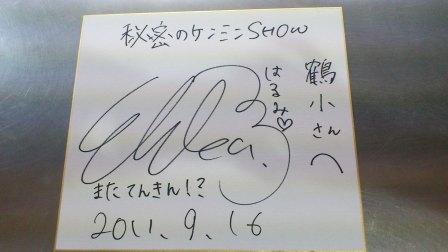 秘密のケンミンSHOW
鶴小さんへ
はるみ♡
またてんきん!?
2011.9.16